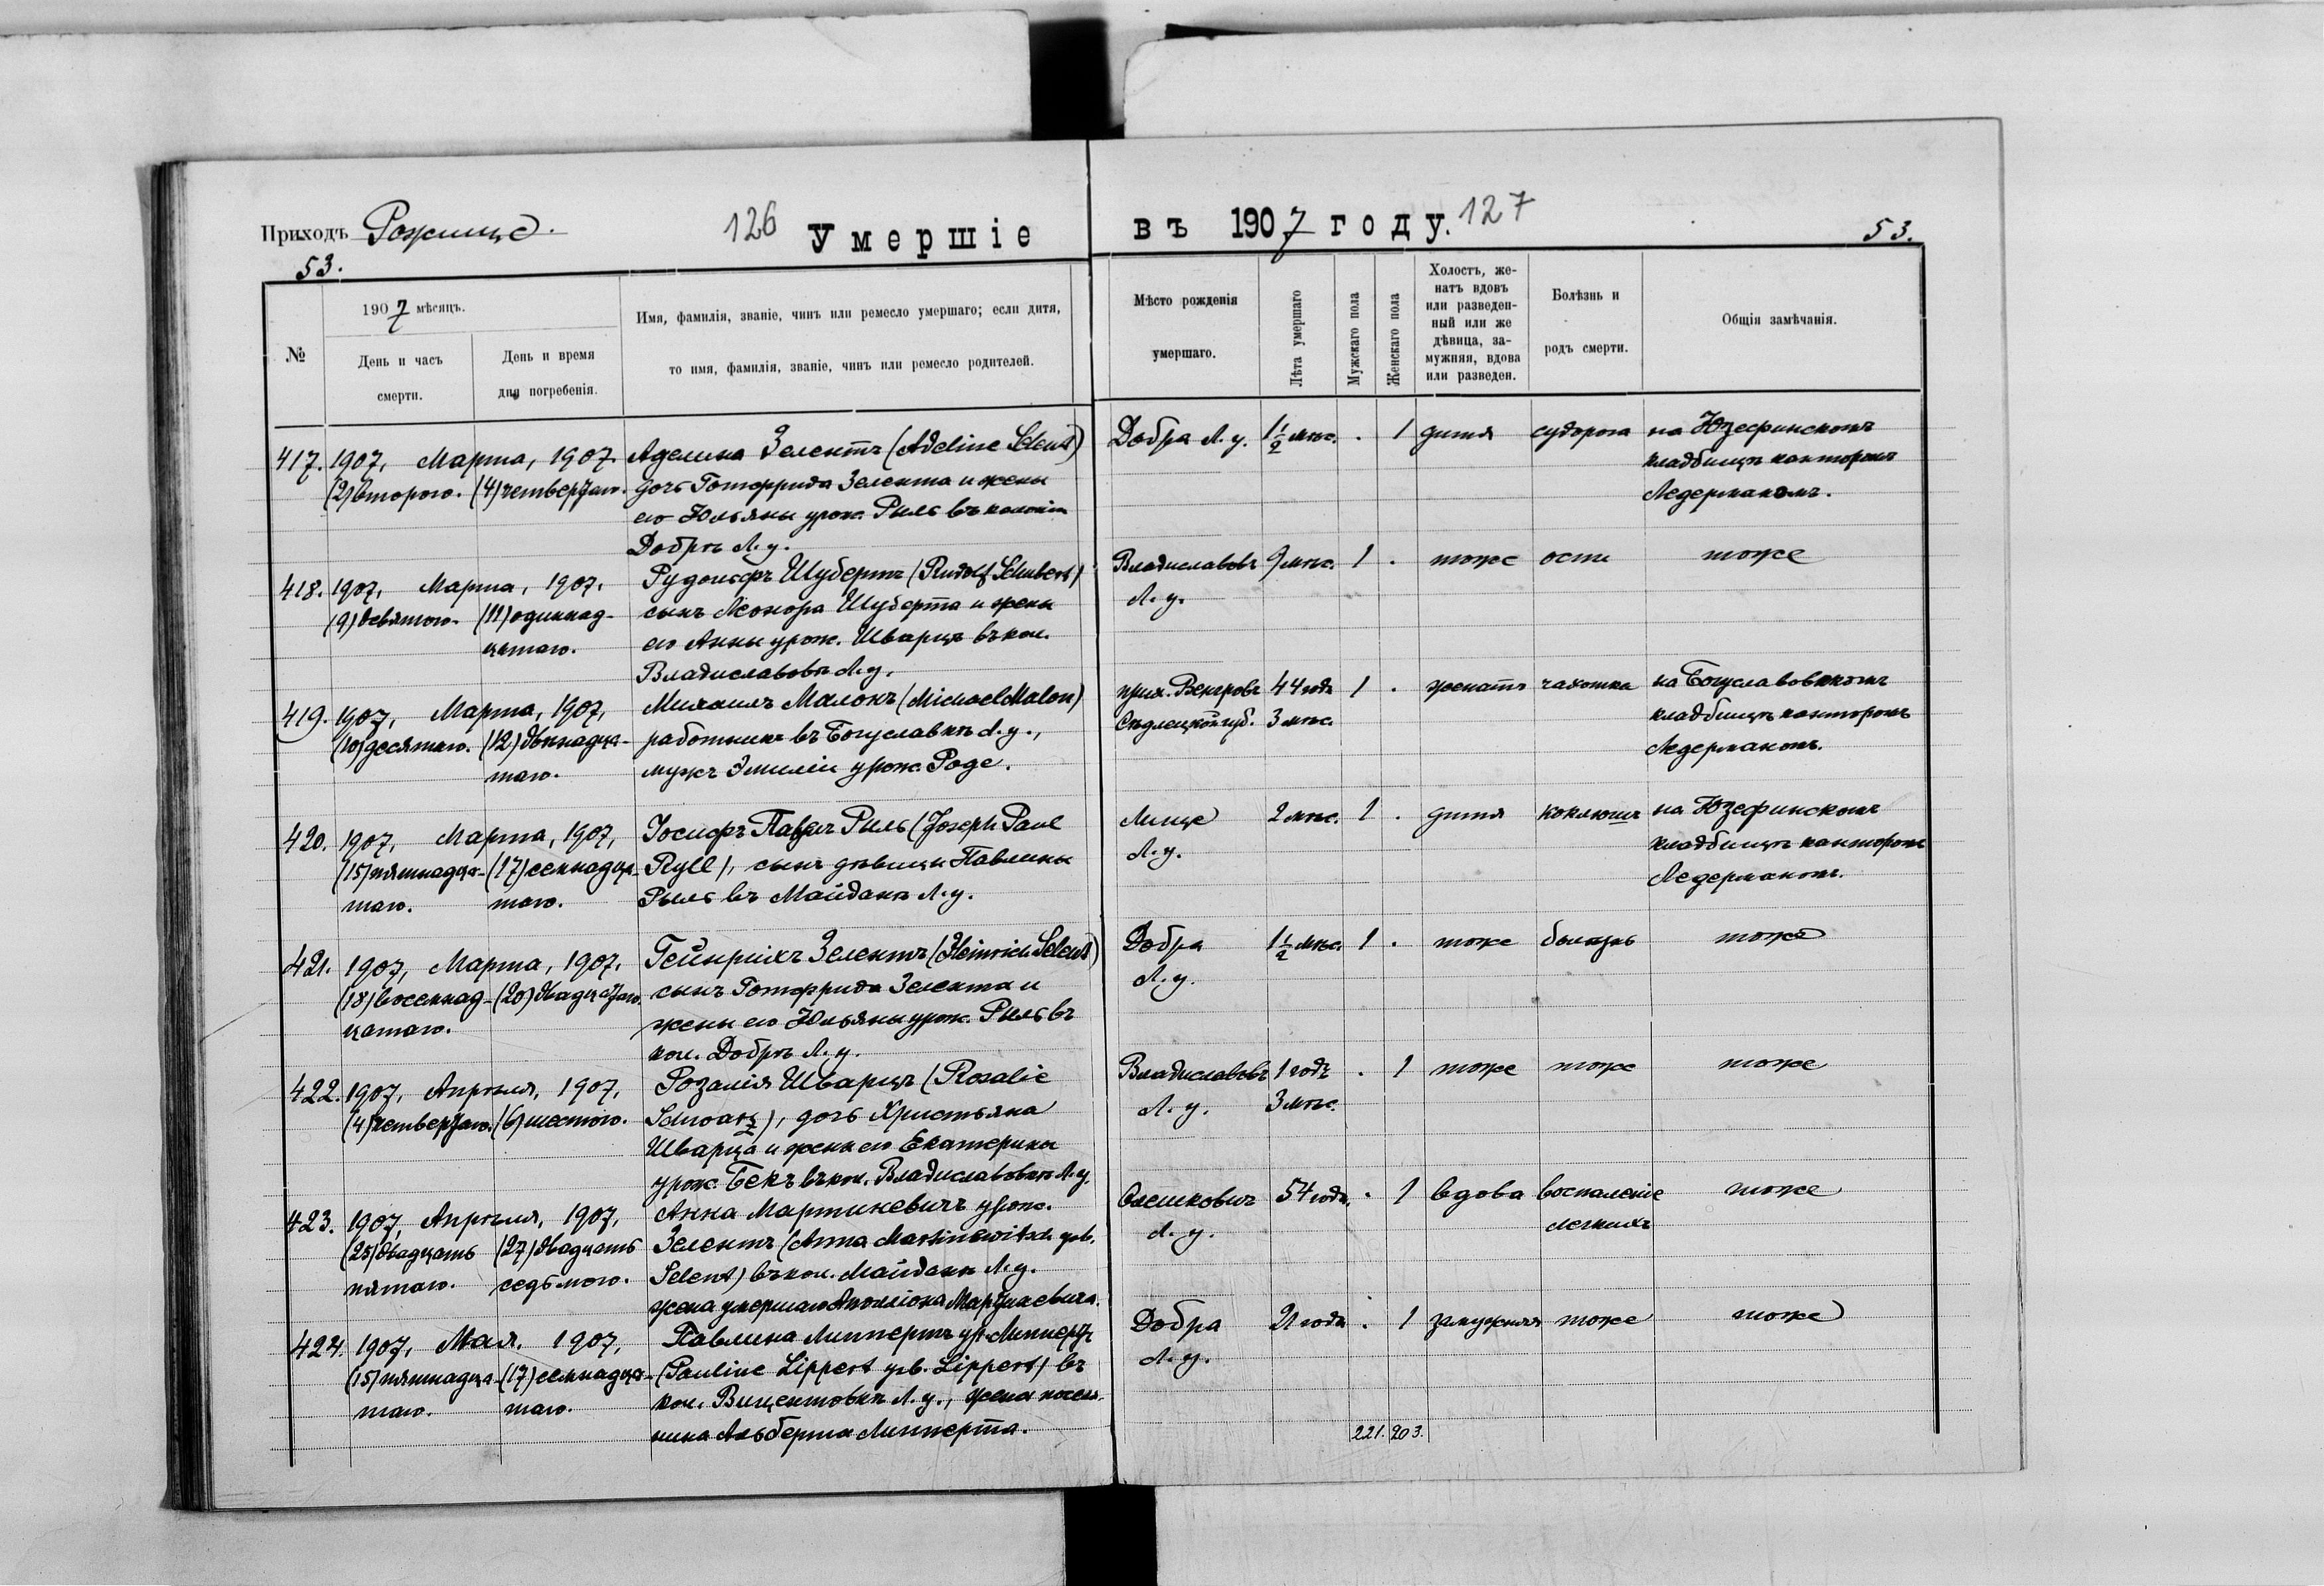 Приходъ Рожище.
126
Умершіе
въ 1907 году.
127
53.
53.
№
1907 мѣсяцъ.
День и часъ
смерти.
День и время
дня погребенія.
Имя, фамилія, званіе, чинъ или ремесло умершаго; если дитя,
то имя, фамилія, званіе, чинъ или ремесло родителей.
Мѣсто рожденія
умершаго.
Лѣта умершаго
Мужскаго пола
Женскаго пола
Холостъ, же-
натъ вдовъ
или разведен-
ный или же
дѣвица, за-
мужняя, вдова
или разведен.
Болѣзнь и
родъ смерти.
Общія замѣчанія.
417. 1907, Марта, 1907. Аделина Зелентъ (Adeline Selent) Добра Л. у. 1½ мѣс. . 1 дитя судорога на Юзефинскомъ
(2) второго. (4) четвертаго. дочь Готфрида Зелента и жены кладбищѣ канторомъ
его Юльяны урож. Рыль въ колоніи Ледерманомъ.
Добрѣ Л. у.
418. 1907, Марта, 1907. Рудольфъ Шубертъ (Rudolf Schubert) Владиславовъ 9 мѣс. 1 . тоже оспа тоже
(9) девятого. (11) одиннад- сынъ Шуберта и жены Л. у.
цатаго. его Анны урож. Шварцъ въ кол.
Владиславовѣ Л. у.
419. 1907, Марта, 1907, Михаилъ Малонъ (Michael Malon) прих. Венгровъ 44 года 1 . женатъ чахотка на Богуславовкомъ
(10) десятаго. (12) двѣнадца- работникъ въ Богуславкѣ Л. у., Сѣдлецкой губ. 3 мѣс. кладбищѣ канторомъ
таго. мужъ Эмиліи урож. Роде. Ледерманомъ.
420. 1907, Марта, 1907, Іосифъ Павелъ Рыль (Joseph Paul Лище 2 мѣс. 1 . дитя коклюшъ на Юзефинскомъ
(15) пятнадца- (17) семнадца- Ryll), сынъ дѣвицы Павлины Л. у. кладбищѣ канторомъ
таго. таго. Рыль въ Майданѣ Л. у. Ледерманомъ.
421. 1907, Марта, 1907. Гейнрихъ Зелентъ (Heinrich Selent) Добра 1½ мѣс. 1 . тоже болѣзнь тоже
(18) восемнад- (20) двадцатаго. сынъ Готфрида Зелента и Л. у.
цатаго. жены его Юльяны урож. Рыль въ
кол. Добрѣ Л. у.
422. 1907, Апрѣля, 1907, Розалія Шварцъ (Rosalie Владиславовъ 1 годъ . 1 тоже тоже тоже
(4) четвертаго. (6) шестого. Schwarz), дочь Христьяна Л. у. 3 мѣс.
Шварца и жены его Екатерины
урож. Бекъ въ кол. Владиславовкѣ Л. у.
423. 1907, Апрѣля, 1907, Анна Мартиневичъ урож. Олешковичъ 54 года. . 1 вдова воспаленіе тоже
(25) двадцать (27) двадцать Зелентъ (Anna Martinewitsch geb. Л. у. легкихъ
пятаго. седьмого. Selent) въ кол. Майданѣ Л. у.
жена умершаго Мартиневича.
424. 1907, Мая, 1907, Павлина Липпертъ ур. Липпертъ Добра 21 года . 1 замужняя тоже тоже
(15) пятнадца- (17) семнадца- (Pauline Lippert geb. Lippert) въ Л. у.
таго. таго. кол. Вицентовкѣ Л. у., жена посел-
нина Альберта Липперта.
221. 203.